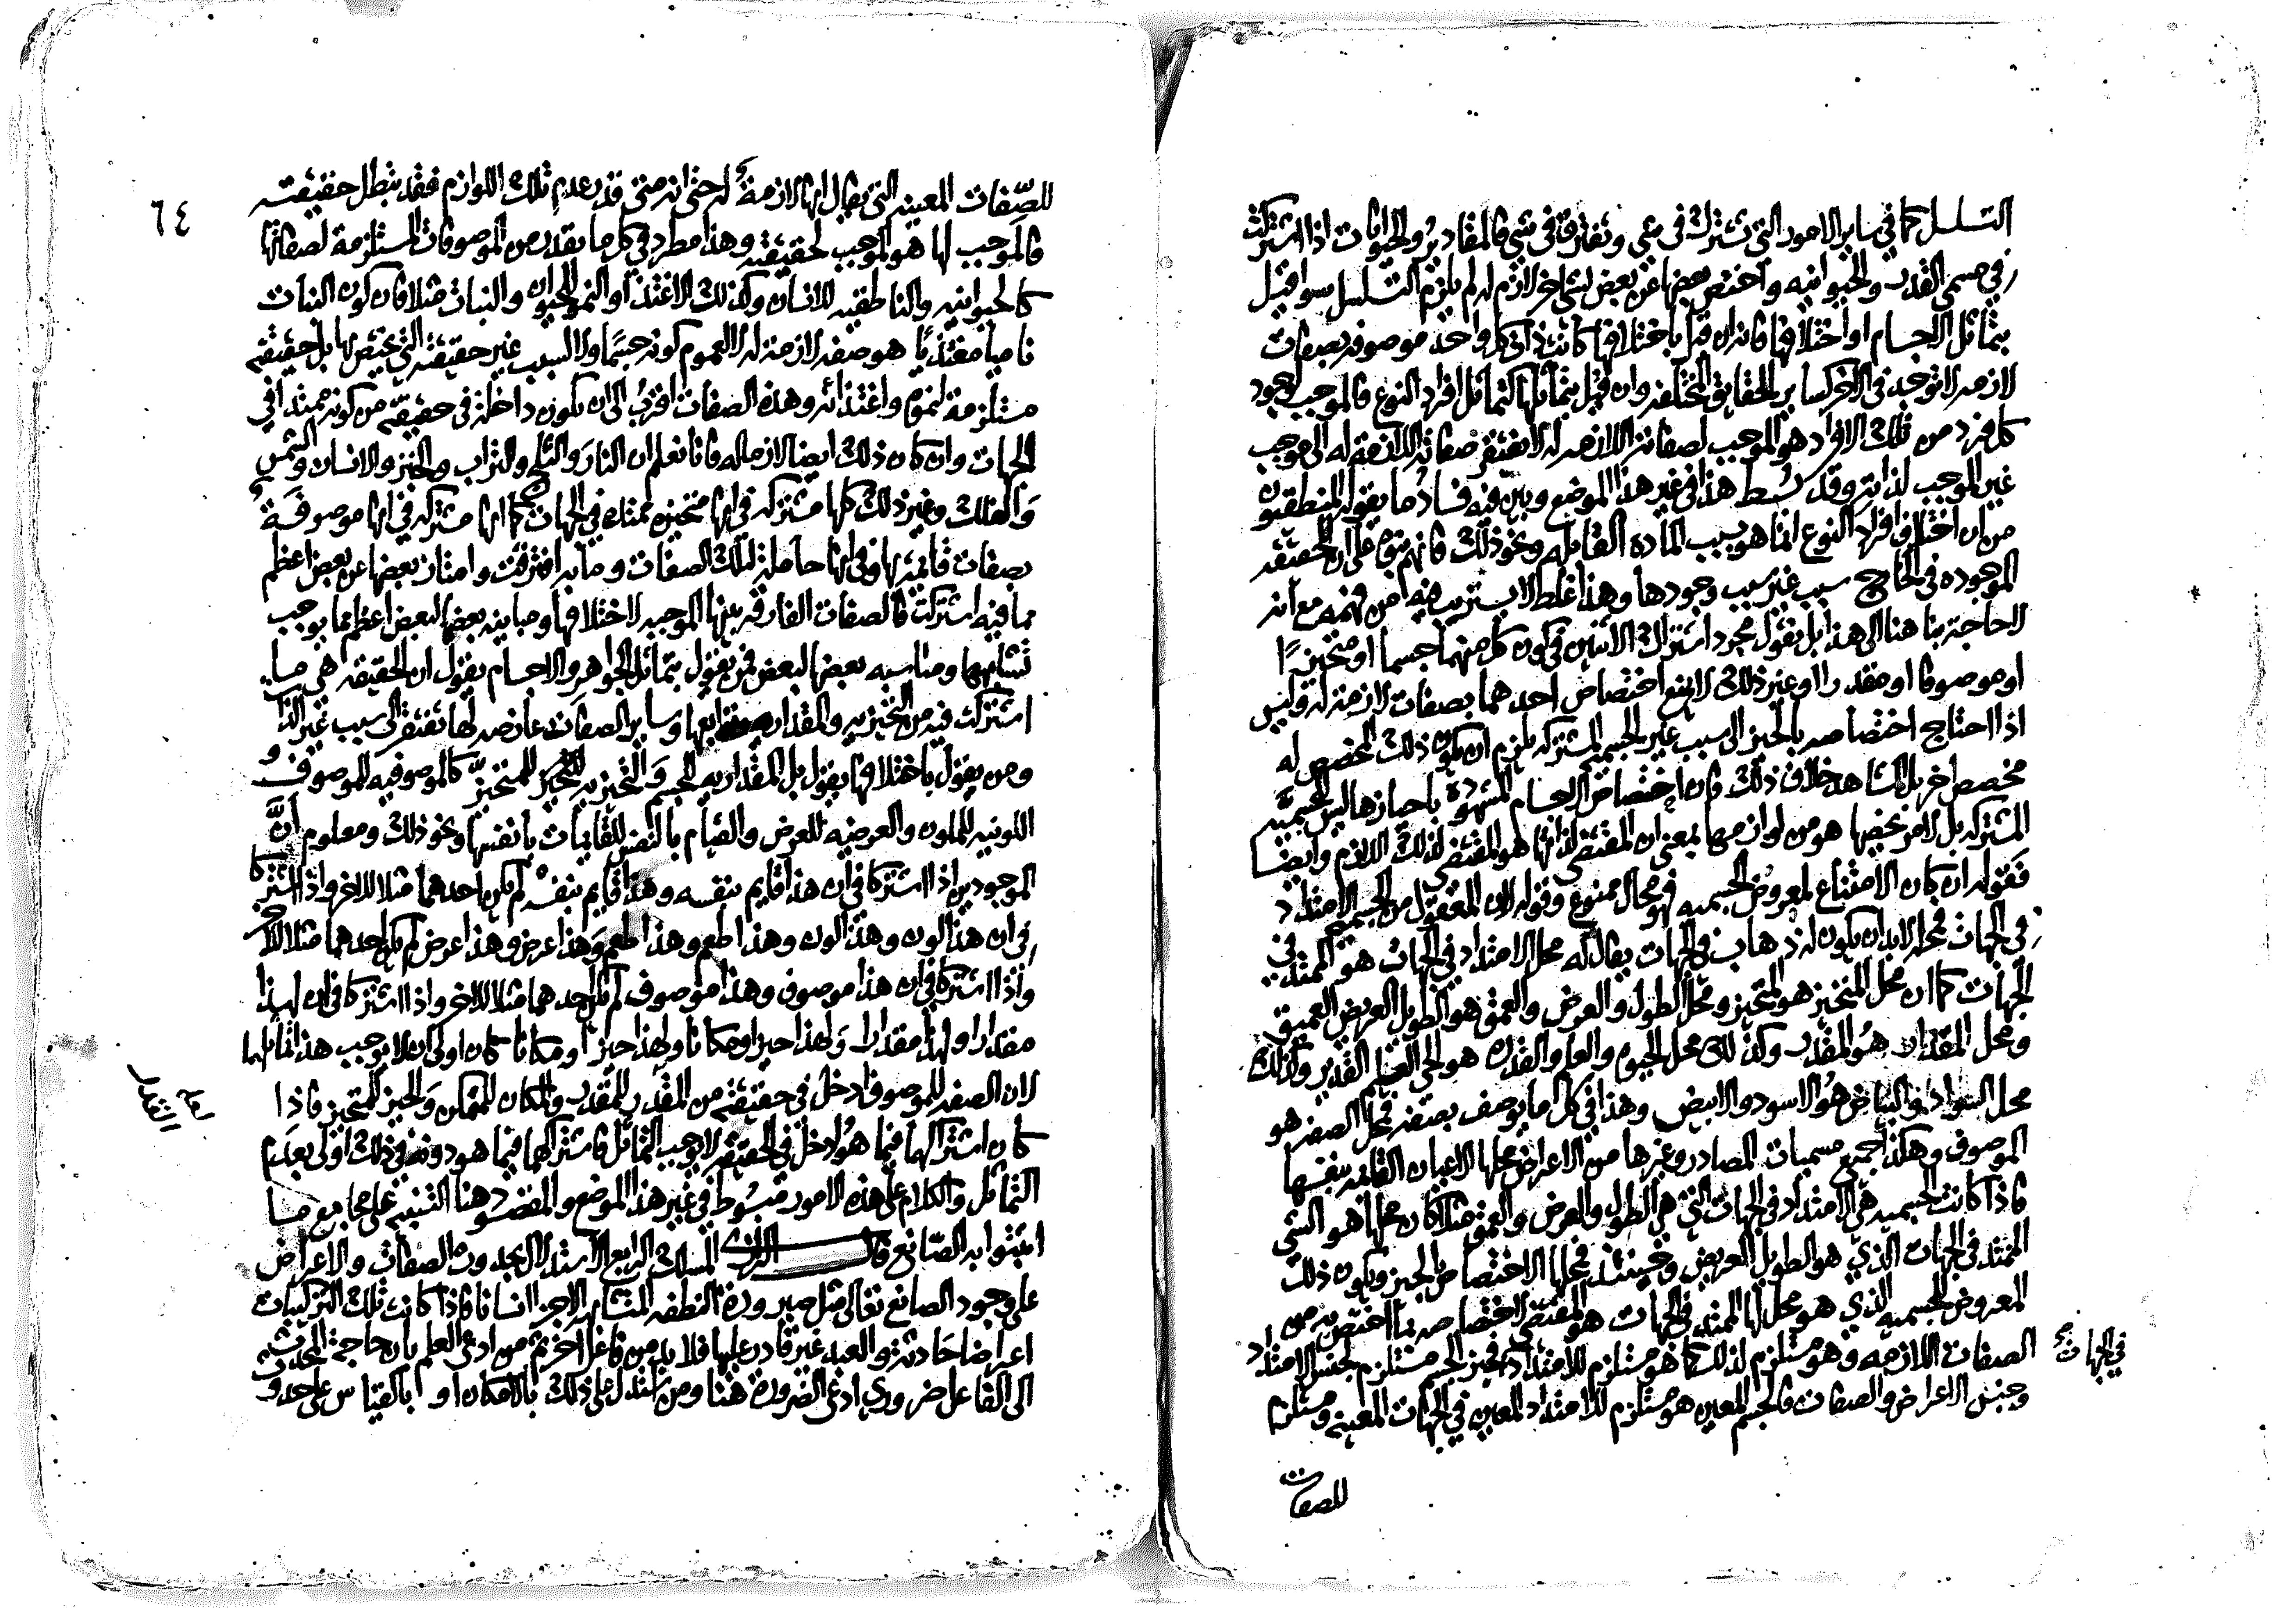 التسلسل كما في ساير الامور التي تشترك في شي وتفترق في شي كالمقادير والحيوانات اذا اشتركت
في مسمى القدر والحيوانيه واختص بعضها عن بعض بشي اخر لازم له لم يلزم التسلسل سوا قيل
بتماثل الاجسام او اختلافها فانه ان قيل باختلافها كانت ذات كل واحد موصوفه بصفات
لازمه لا توجد في الاخر كساير الحقايق المختلفه وان قيل بتماثلها كتماثل افراد النوع فالموجب لوجود
كل فرد من تلك الافراد هو الموجب لصفاته اللازمه له لا تفتقر صفاته اللازمة له الى موجب
غير الموجب لذاته وقد بسط هذا في غير هذا الموضع وبين فيه فساد ما يقوله المنطقيون
من ان اختلاف افراد النوع انما هو بسبب المادة القابله ونحو ذلك فانهم بنوه على ان للحقيقه
الموجوده في الخارج سبب غير سبب وجودها وهذا غلط لا يستريب فيه من فهمه مع انه
لا حاجة بنا هنا الى هذا بل نقول مجرد اشتراك الاثنين في كون كل منهما جسما او متحيزا
او موصوفا او مقدرا او غير ذلك لا يمنع اختصاص احدهما بصفات لازمة له وليس
اذا احتاج اختصاصه بالحيز الى سبب غير الجسميه المشتركه يلزم ان يكون ذلك المخصص له
مخصص اخر بل المشاهد خلاف ذلك فان اختصاص الاجسام المشهودة باحيازها ليس للجسمية
المشتركه بل لامر يخصها هو من لوازمها بمعنى ان المقتضي لذاتها هو المقتضي لذلك اللازم وايضا
فقوله ان كان الامتناع لمعروض الجسميه فهو محال ممنوع وقوله لان المعقول من الجسميه الامتداد
في الجهات فمحله لا بد ان يكون له ذهاب في الجهات يقال له محل الامتداد في الجهات هو الممتد في
الجهات كما ان محل التحيز هو المتحيز ومحل الطول والعرض والعمق هو الطويل العريض العميق
ومحل المقدار هو المقدر وكذلك محل الحيوة والعلم والقدرة هو الحي العليم القدير وكذلك
محل السواد والبياض هو الاسود والابيض وهذا في كل ما يوصف بصفة فمحل الصفه هو
الموصوف وهكذا جميع مسميات المصادر وغيرها من الاعراض محلها الاعيان القايمه بنفسها
فاذا كانت الجسميه هي الامتداد في الجهات التي هي الطول والعرض والعمق مثلا كان محلها هو الشي
الممتد في الجهات الذي هو الطويل العريض وحينئذ فمحلها له اختصاص بالحيز ويكون ذلك
المعروض للجسميه الذي هو محل لها الممتد في الجهات هو المقتضي لاختصاصه بما اختص به من
الصفات اللازمه وهو مستلزم لذلك كما هو مستلزم للامتداد فجنس الجسم مستلزم لجنس الامتداد
في الجهات صح
وجنس الاعراض والصفات فالجسم المعين هو مستلزم للامتداد المعين في الجهات المعينه ومستلزم
للصفات
٦٤
للصفات المعينه التي يقال انها لازمة له حتى انه متى قدر عدم تلك اللوازم فقد تبطل حقيقته
فالموجب لها هو الموجب لحقيقته وهذا مطرد في كل ما يقدر من الموصوفات المستلزمة لصفاتها
كالحيوانيه والناطقيه للانسان وكذلك الاغتذا والنمو للحيوان والنبات مثلا فان كون النبات
ناميا مغتذيا هو صفه لازمة له لا لعموم كونه جسما ولا لسبب غير حقيقته التي يختص بها بل حقيقته
مستلزمة لنموه واغتذائه وهذه الصفات اقرب الى ان يكون داخله في حقيقته من كونه ممتدا في
الجهات وان كان ذلك ايضا لازما له فانا نعلم ان النار والثلج والتراب والخبز والانسان والشمس
والفلك وغير ذلك كلها مشتركه في انها متحيزه ممتدة في الجهات كما انها مشتركه في انها موصوفة
بصفات قائمة بها وفي انها حاملة لتلك الصفات وما به افترقت وامتاز بعضها عن بعض اعظم
مما فيه اشتركت فالصفات الفارقه بينها الموجبه لاختلافها ومباينه بعضها لبعض اعظم مما يوجب
تشابهها ومناسبه بعضها لبعض فمن يقول بتماثل الجواهر والاجسام يقول ان الحقيقه هي ما
اشتركت فيه من التحيزيه والمقداريه وتوابعها وساير الصفات عارضه لها تفتقر الى سبب غير الذات
ومن يقول باختلافها يقول بل المقداريه للجسم والتحيزيه للمتحيز كالموصوفيه للموصوف و
اللونيه للملون والعرضيه للعرض والقيام بالنفس للقايمات بانفسها ونحو ذلك ومعلوم ان
الموجودين اذا اشتركا في ان هذا قايم بنفسه وهذا قايم بنفسه لم يكن احدهما مثلا للاخر واذا اشتركا
في ان هذا لون وهذا لون وهذا طعم وهذا طعم وهذا عرض وهذا عرض لم يكن احدهما مثلا للاخر
واذا اشتركا في ان هذا موصوف وهذا موصوف لم يكن احدهما مثلا للاخر واذا اشتركا في ان لهذا
مقدارا ولهذا مقدارا ولهذا حيزا ومكانا ولهذا حيزا ومكانا كان اولى ان لا يوجب هذا تماثلهما
لان الصفه للموصوف ادخل في حقيقته من القدر للمقدر والمكان للمتمكن والحيز للمتحيز فاذا
لعله
المقدار
كان اشتراكهما فيما هو ادخل في الحقيقه لا يوجب التماثل فاشتراكهما فيما هو دونه في ذلك اولى بعدم
التماثل والكلام على هذه الامور مبسوط في غير هذا الموضع والمقصود هنا التنبيه على مجامع ما
اثبتوا به الصانع قال الرازي المسلك الرابع الاستدلال بحدوث الصفات والاعراض
على وجود الصانع تعالى مثل صيرورة النطفه المتشابهة الاجزا انسانا فاذا كانت تلك التركيبات
اعراضا حادثة والعبد غير قادر عليها فلا بد من فاعل اخر ثم من ادعى العلم بان حاجة المحدث
الى الفاعل ضروري ادعى الضرورة هنا ومن استدل على ذلك بالامكان او بالقياس على حدوث